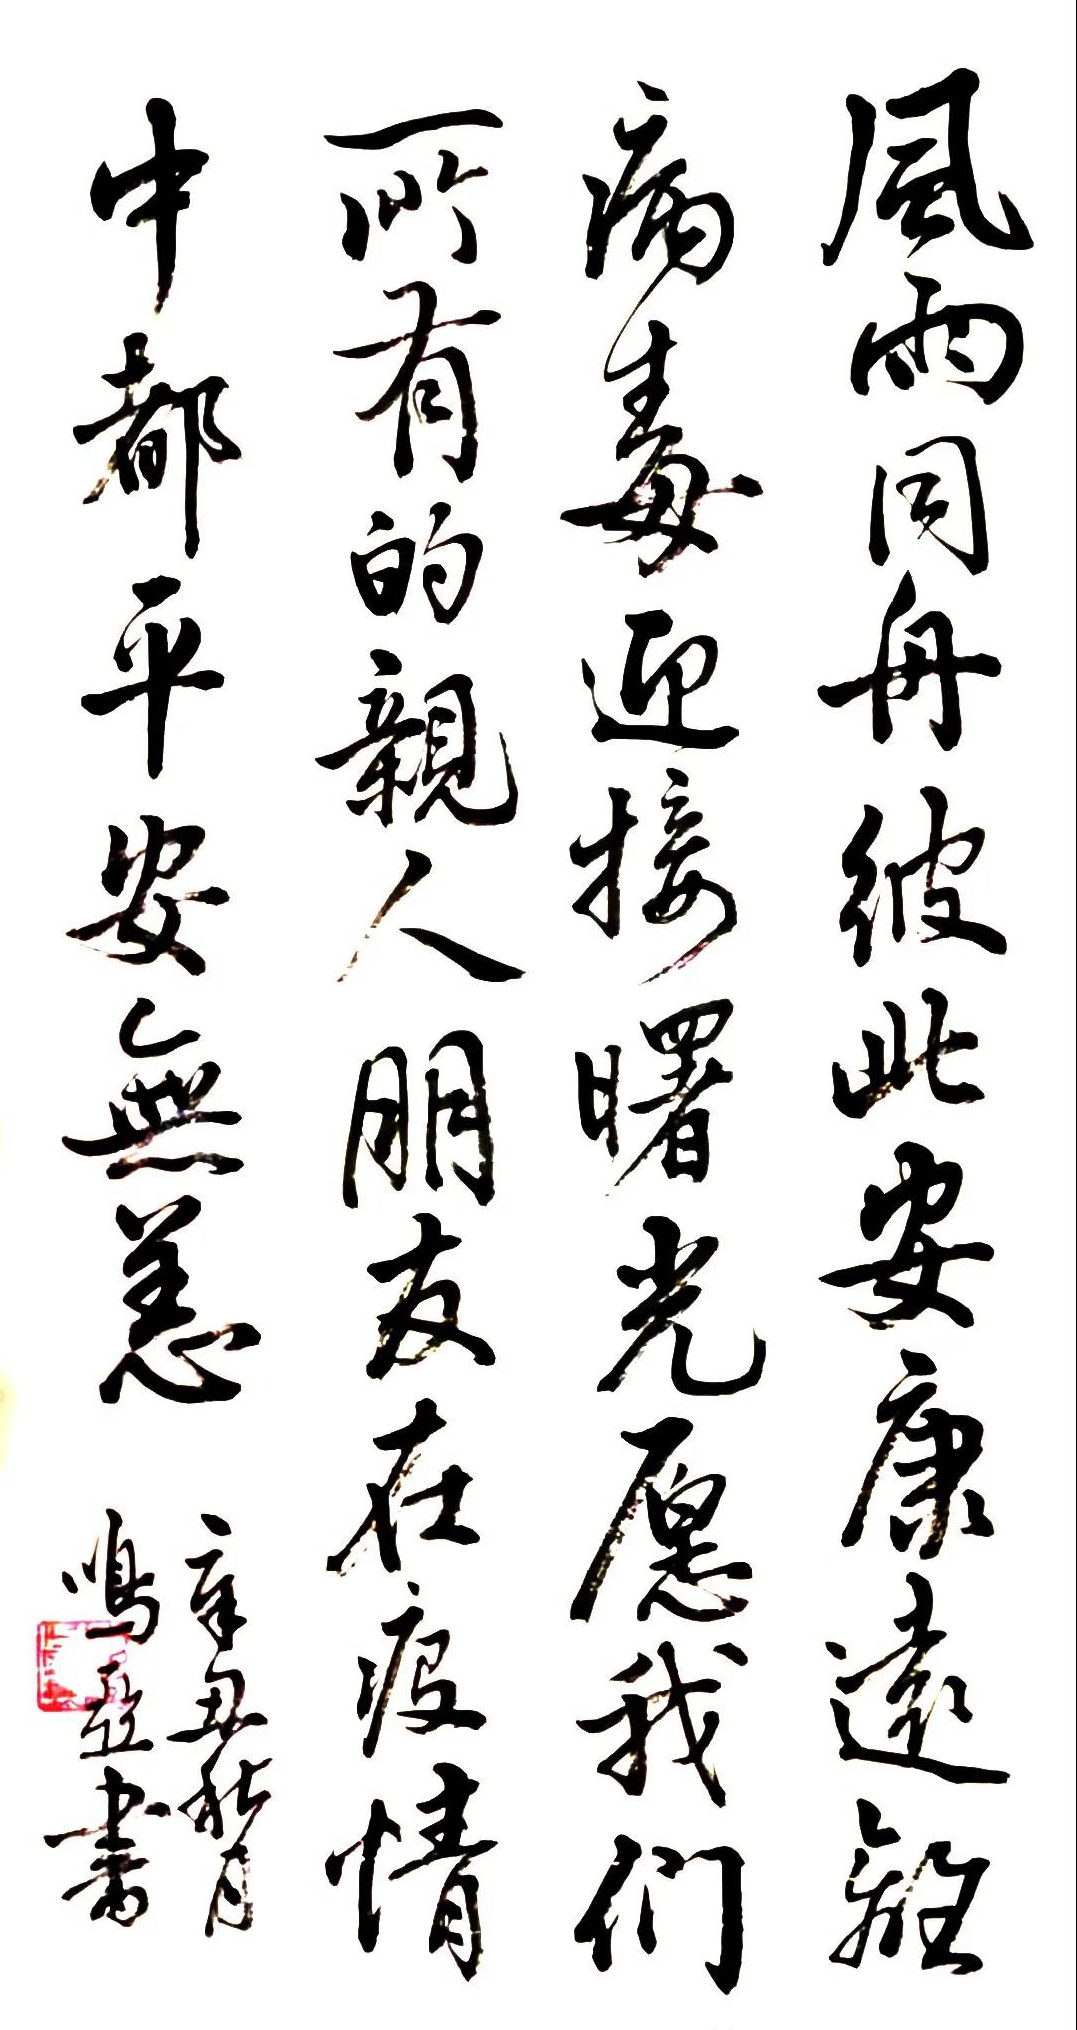 風雨同舟彼此安康遠離
病毒迎接曙光愿我們
所有的親人朋友在疫情
中都平安無恙
辛丑秋月
鳴亞書